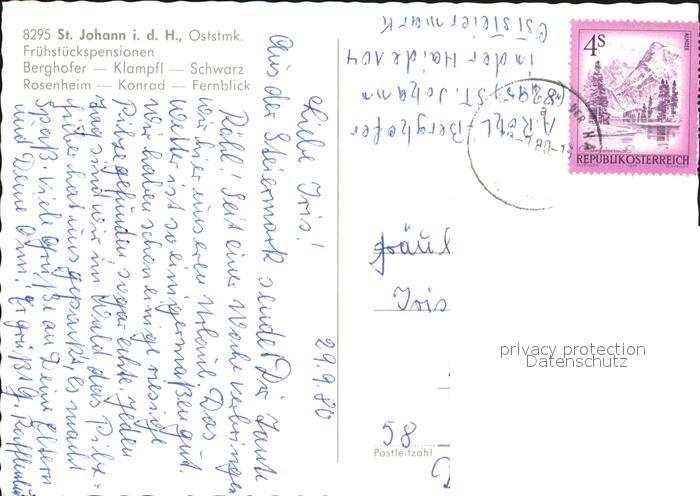 8295 St. Johann i. d. H., Oststmk.
Frühstückspensionen
Berghofer — Klampfl — Schwarz
Rosenheim — Konrad — Fernblick
29.9.80
Liebe Iris!
Aus der Steiermark sendet Dir Tante
Röhl! Seit einer Woche verbringen
wir hier unseren Urlaub. Das
Wetter ist so einigermaßen gut.
Wir haben schon einige riesige
Pilze gefunden sogar echte. Jeden
Tag sind wir im Wald das Pilz-
fieber hat uns gepackt, es macht
Spaß. Viele Grüße an Deine Eltern
und Deine Omi! Es grüßt
A. Röhl - Berghofer
8295 / ST. Johann
in der Haide 104
Oststeiermark
4S
ALMSEE
REPUBLIK ÖSTERREICH
80-1
Fräul
Iris
58
Postleitzahl
privacy protection
Datenschutz